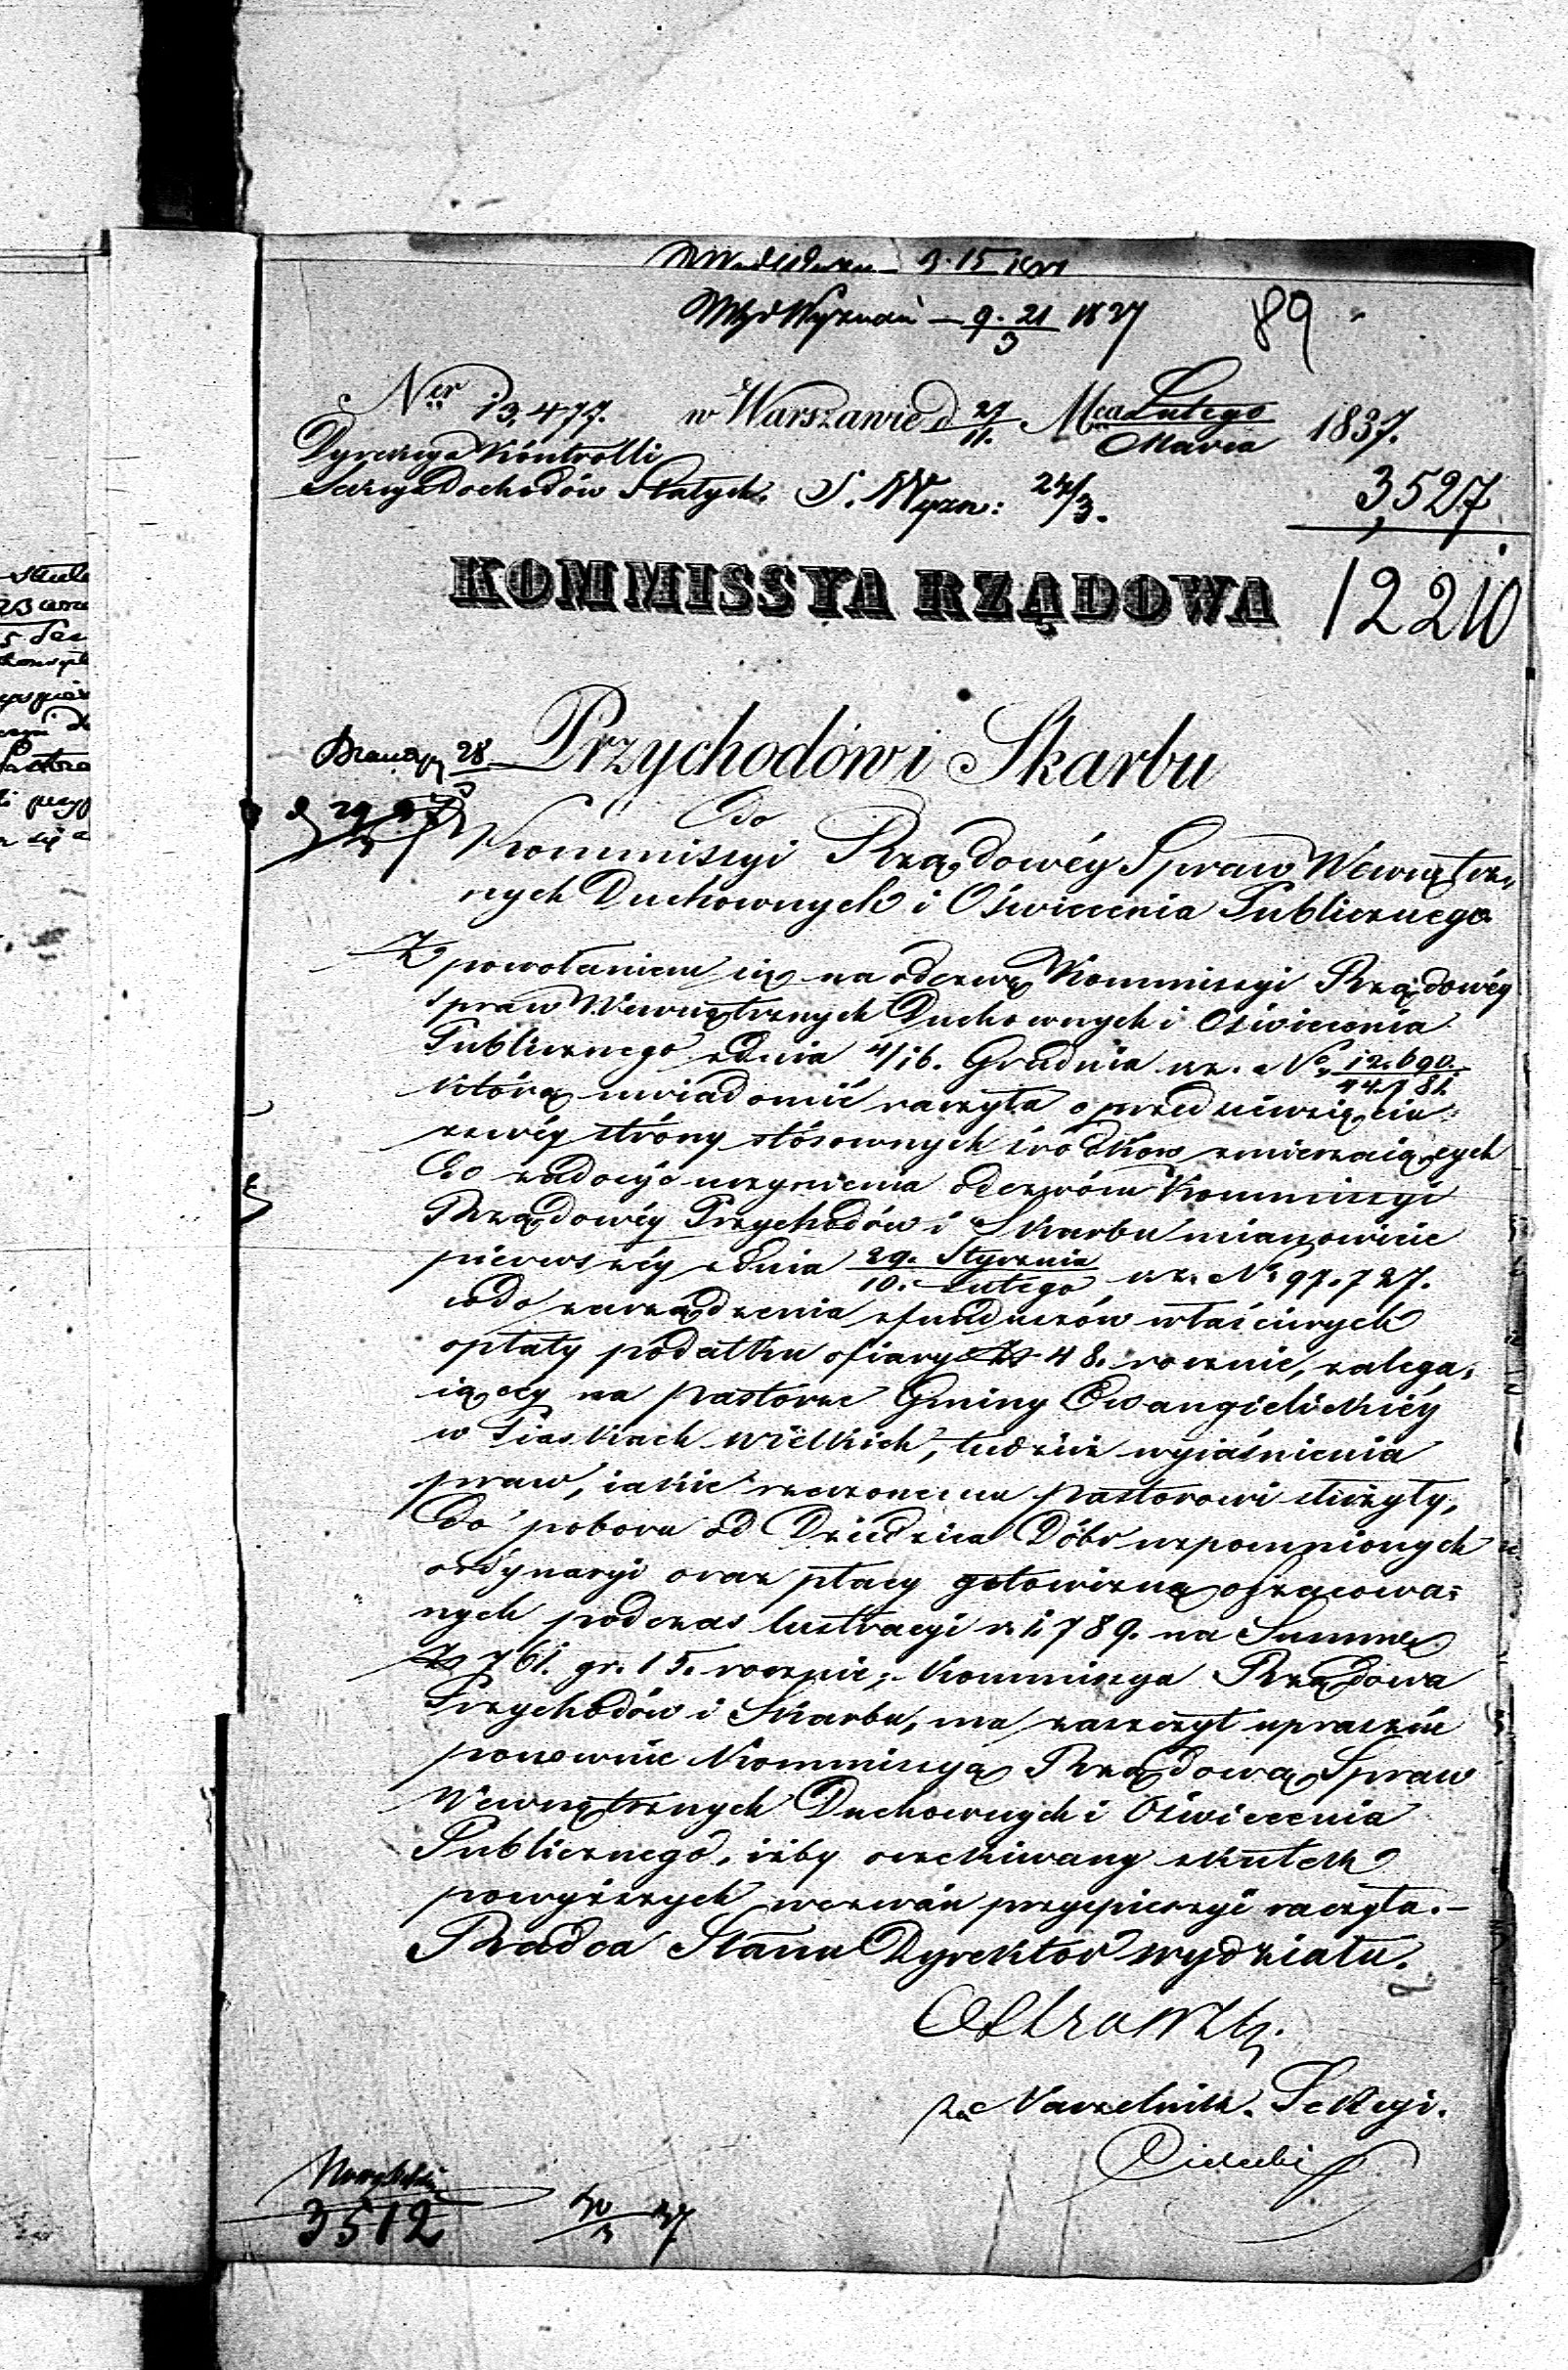 9. 21/3 1837
89
Ner 13,477. w Warszawie d 27/11. Mca Lutego/Marca 1837.
Dyrekcya Kontrolli
Sekcya Dochodów Stałych. S. Wyzn: 24/3.
3,527
KOMMISSYA RZĄDOWA
12210
Przychodów i Skarbu
28
Do
Kommissyi Rządowéy Spraw Wewnętrz,
nych Duchownych i Oświecenia Publicznego
Z powołaniem się na odezwę Kommissyi Rządowéy
Spraw Wewnętrznych Duchownych i Oświecenia
Publicznego z dnia 4/16. Grudnia r.z. No 12,690./44,181.
którą uwiadomić raczyła o przedsiewzięciu
zswéy strony stósownych środków zmierzaiących
do zadosyć uczynienia odezwóm Kommissyi
Rządowéy Przychodów i Skarbu mianowicie
pierwszéy z dnia 29. Stycznia/10. Lutego r.z. No 97.727.
wdo zarządzenia z funduszów właściwych
opłaty podatku ofiary Zł 48. rocznie, zalega,
iącéy na Pastorze Gminy Ewangielickiéy
w Piaskach Wielkich, tudzież wyiaśnienia
praw, iakie rzeczonemu Pastorowi służyły,
do poboru od Dziedzica Dóbr wzpomnionych
ordynaryi oraz płacy gotowizną oszacowa=
nych podczas lustracyi r. 1789. na Summę
Zł 761. gr. 15. rocznie; Kommissya Rządowa
Przychodów i Skarbu, ma zaszczyt upraszać
ponownie Kommissyą Rządową Spraw
Wewnętrznych Duchownych i Oświecenia
Publicznego, iżby oczekiwany skutek
powyższych wezwań przyspieszyć raczyła.—
Radca Stanu Dyrektor Wydziału.
za Naczelnik. Sekcyi.
3512